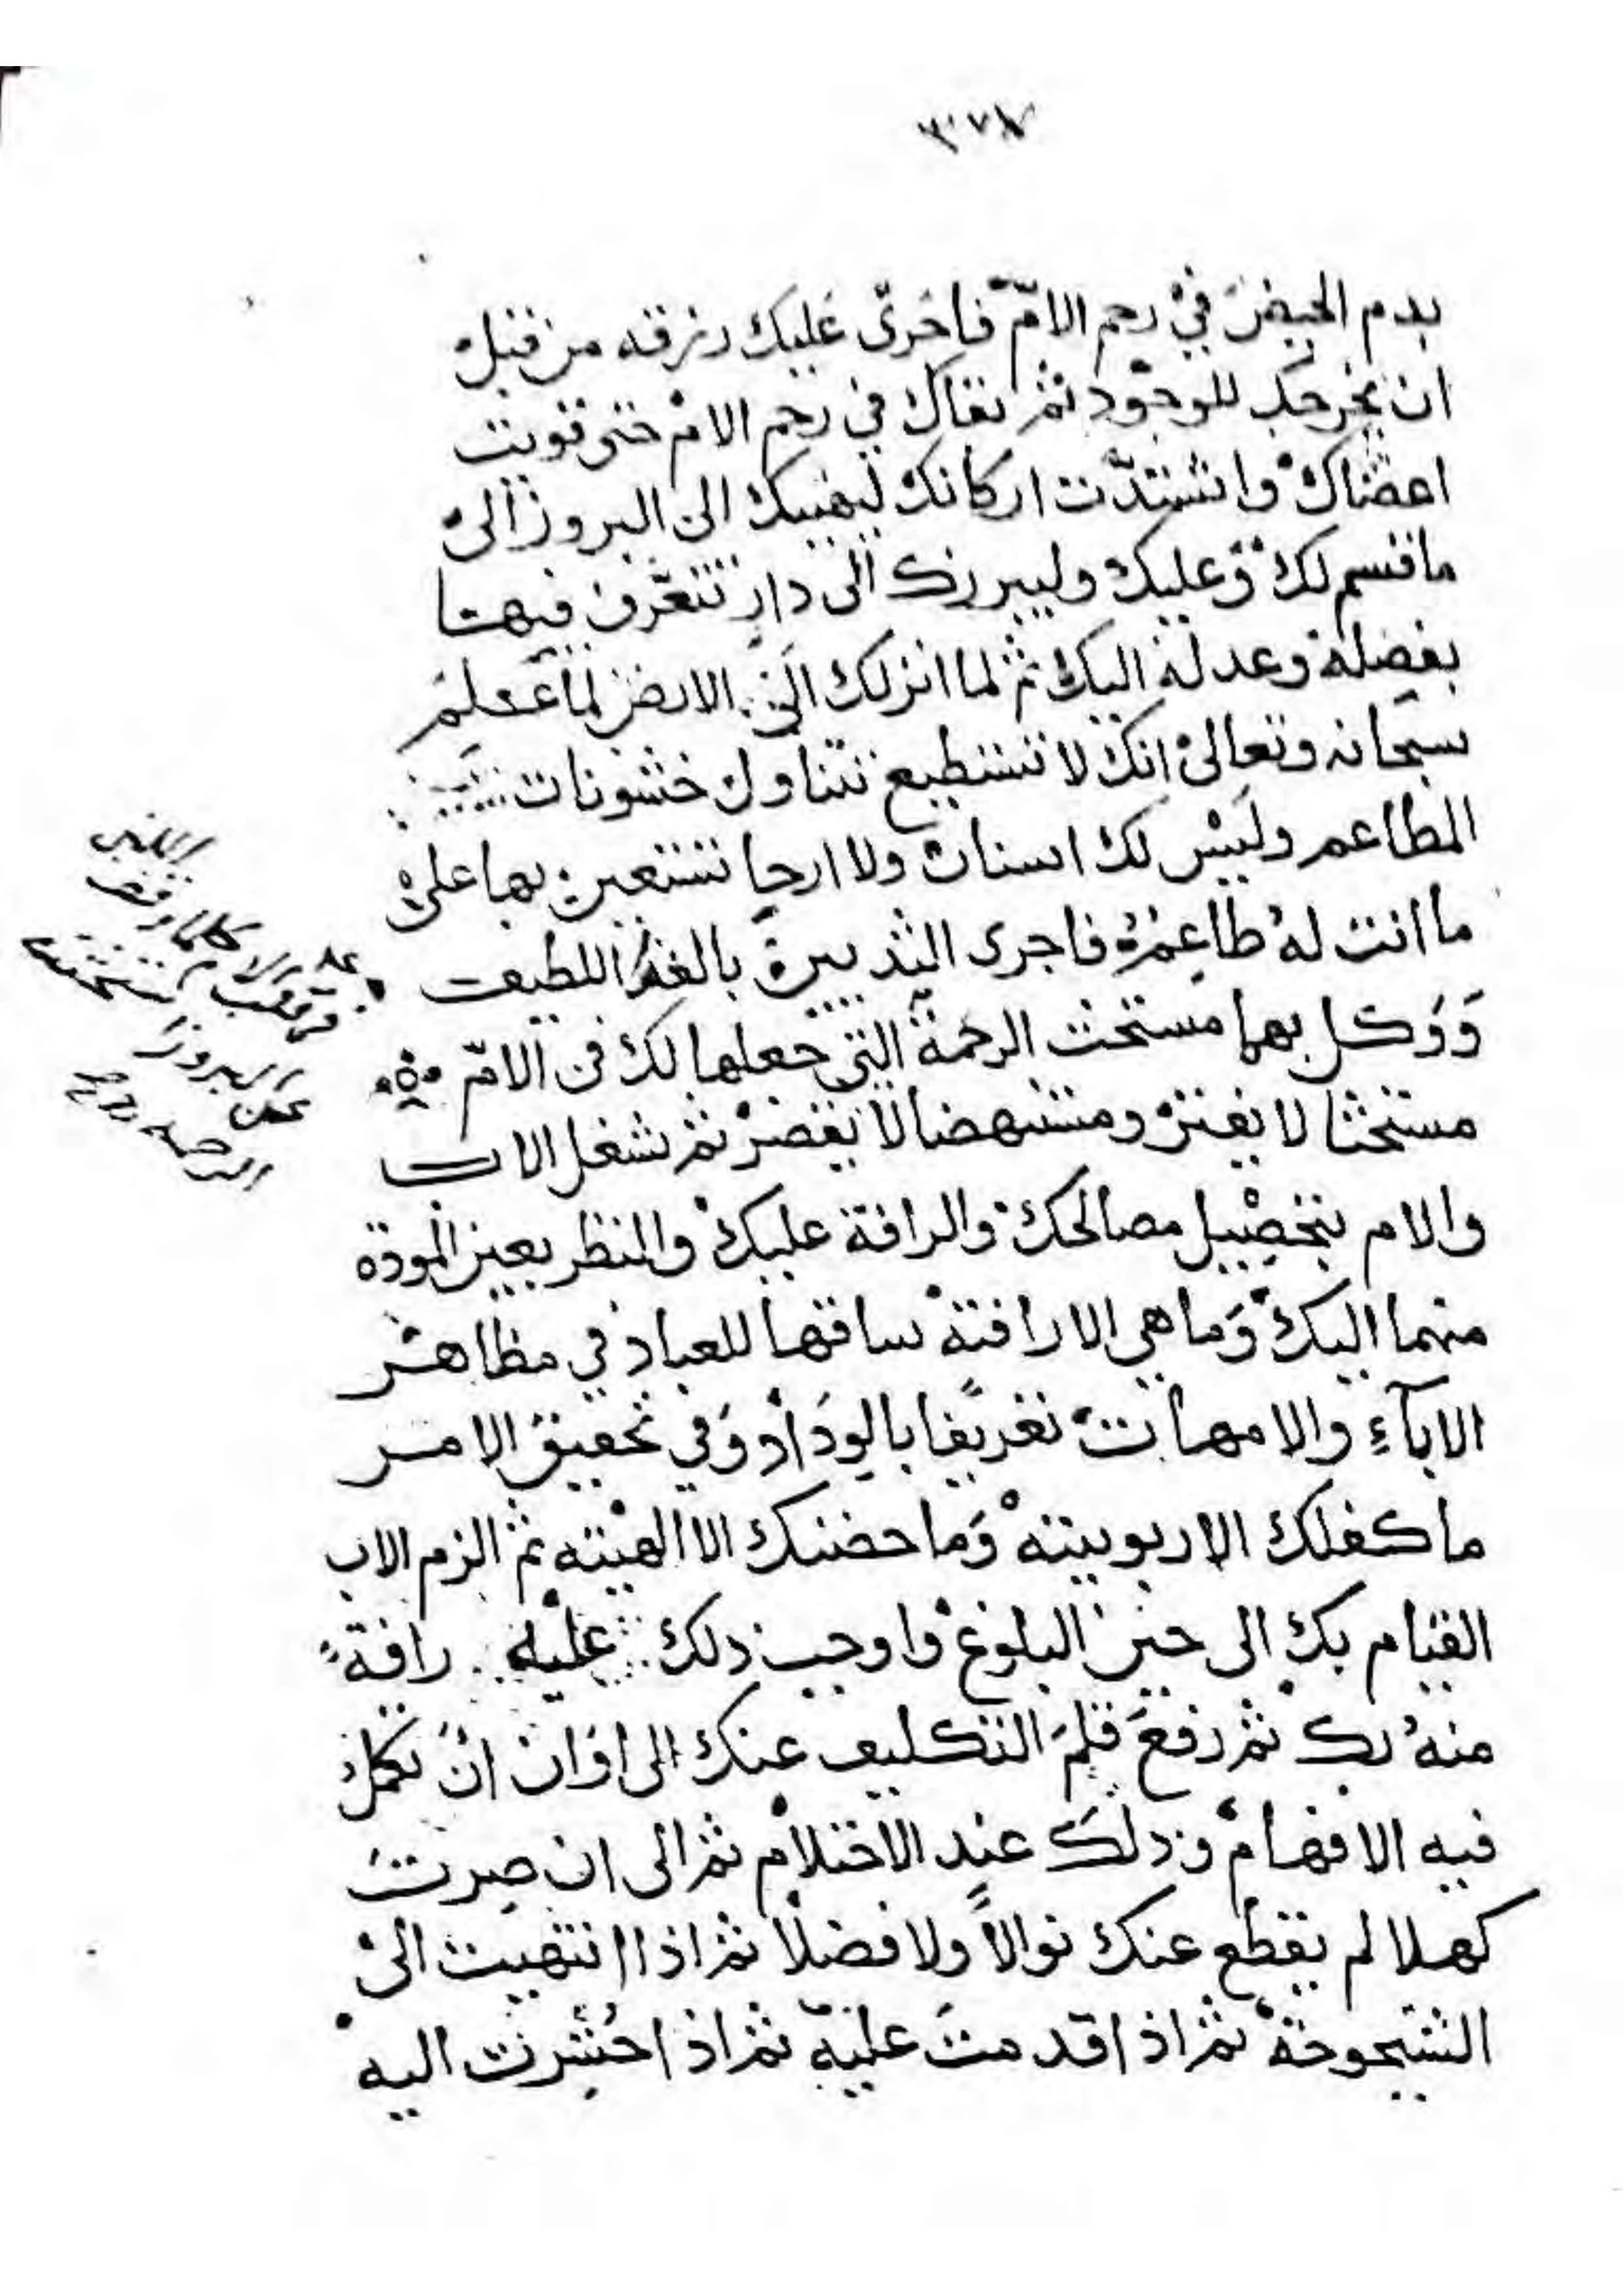 بدم الحيض في رحم الامّ فاجرى عليك رزقه من قبل
ان يخرجك للوجود ثم ابقاك في رحم الام حتى قويت
اعضاك واشتدّت اركانك ليهيبك الى البروز الى
ما قسم لك وعليك وليبرزك الى دار تتعرّف فيها
بفضله وعدله اليك ثم لما انزلك الى الارض لما علم
سبحانه وتعالى انك لا تستطيع تتناول خشونات
المطاعم وليس لك اسنان ولا ارحا تستعين بها على
ما انت له طاعمه فاجرى الثديين بالغذا اللطيف
ووكل بهما مستحث الرحمة التي جعلها لك في الامّ
مستحثا لا يفتر ومستنهضا لا يقصر ثم شغل الاب
والام بتحصيل مصالحك والرافة عليك والنظر بعين المودة
منهما اليك وما هي الا رافته ساقها للعباد في مظاهر
الاباء والامهات تعريفا بالوداد وفي تحقيق الامر
ما كفلك الا ربوبيته وما حضنك الا الهيته ثم الزم الاب
القيام بك الى حين البلوغ واوجب ذلك عليه رافة
منه بك ثم رفع قلم التكليف عنك الى اوان ان تكمل
فيه الافهام وذلك عند الاحتلام ثم الى ان صرت
كهلا لم يقطع عنك نوالاً ولا فضلا ثم اذا انتهيت الى
الشيخوخة ثم اذا قدمت عليه ثم اذا حشرت اليه
كلما وقف
البروز
الرحمه